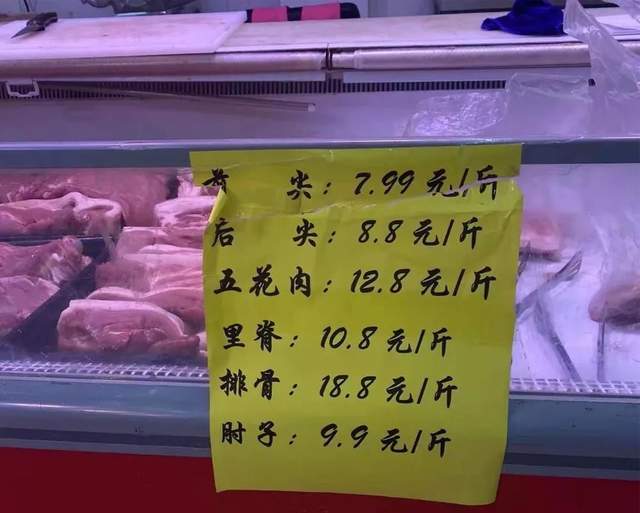 前 尖：7.99 元/斤
后 尖：8.8 元/斤
五花肉：12.8 元/斤
里脊：10.8 元/斤
排骨：18.8 元/斤
肘子：9.9 元/斤